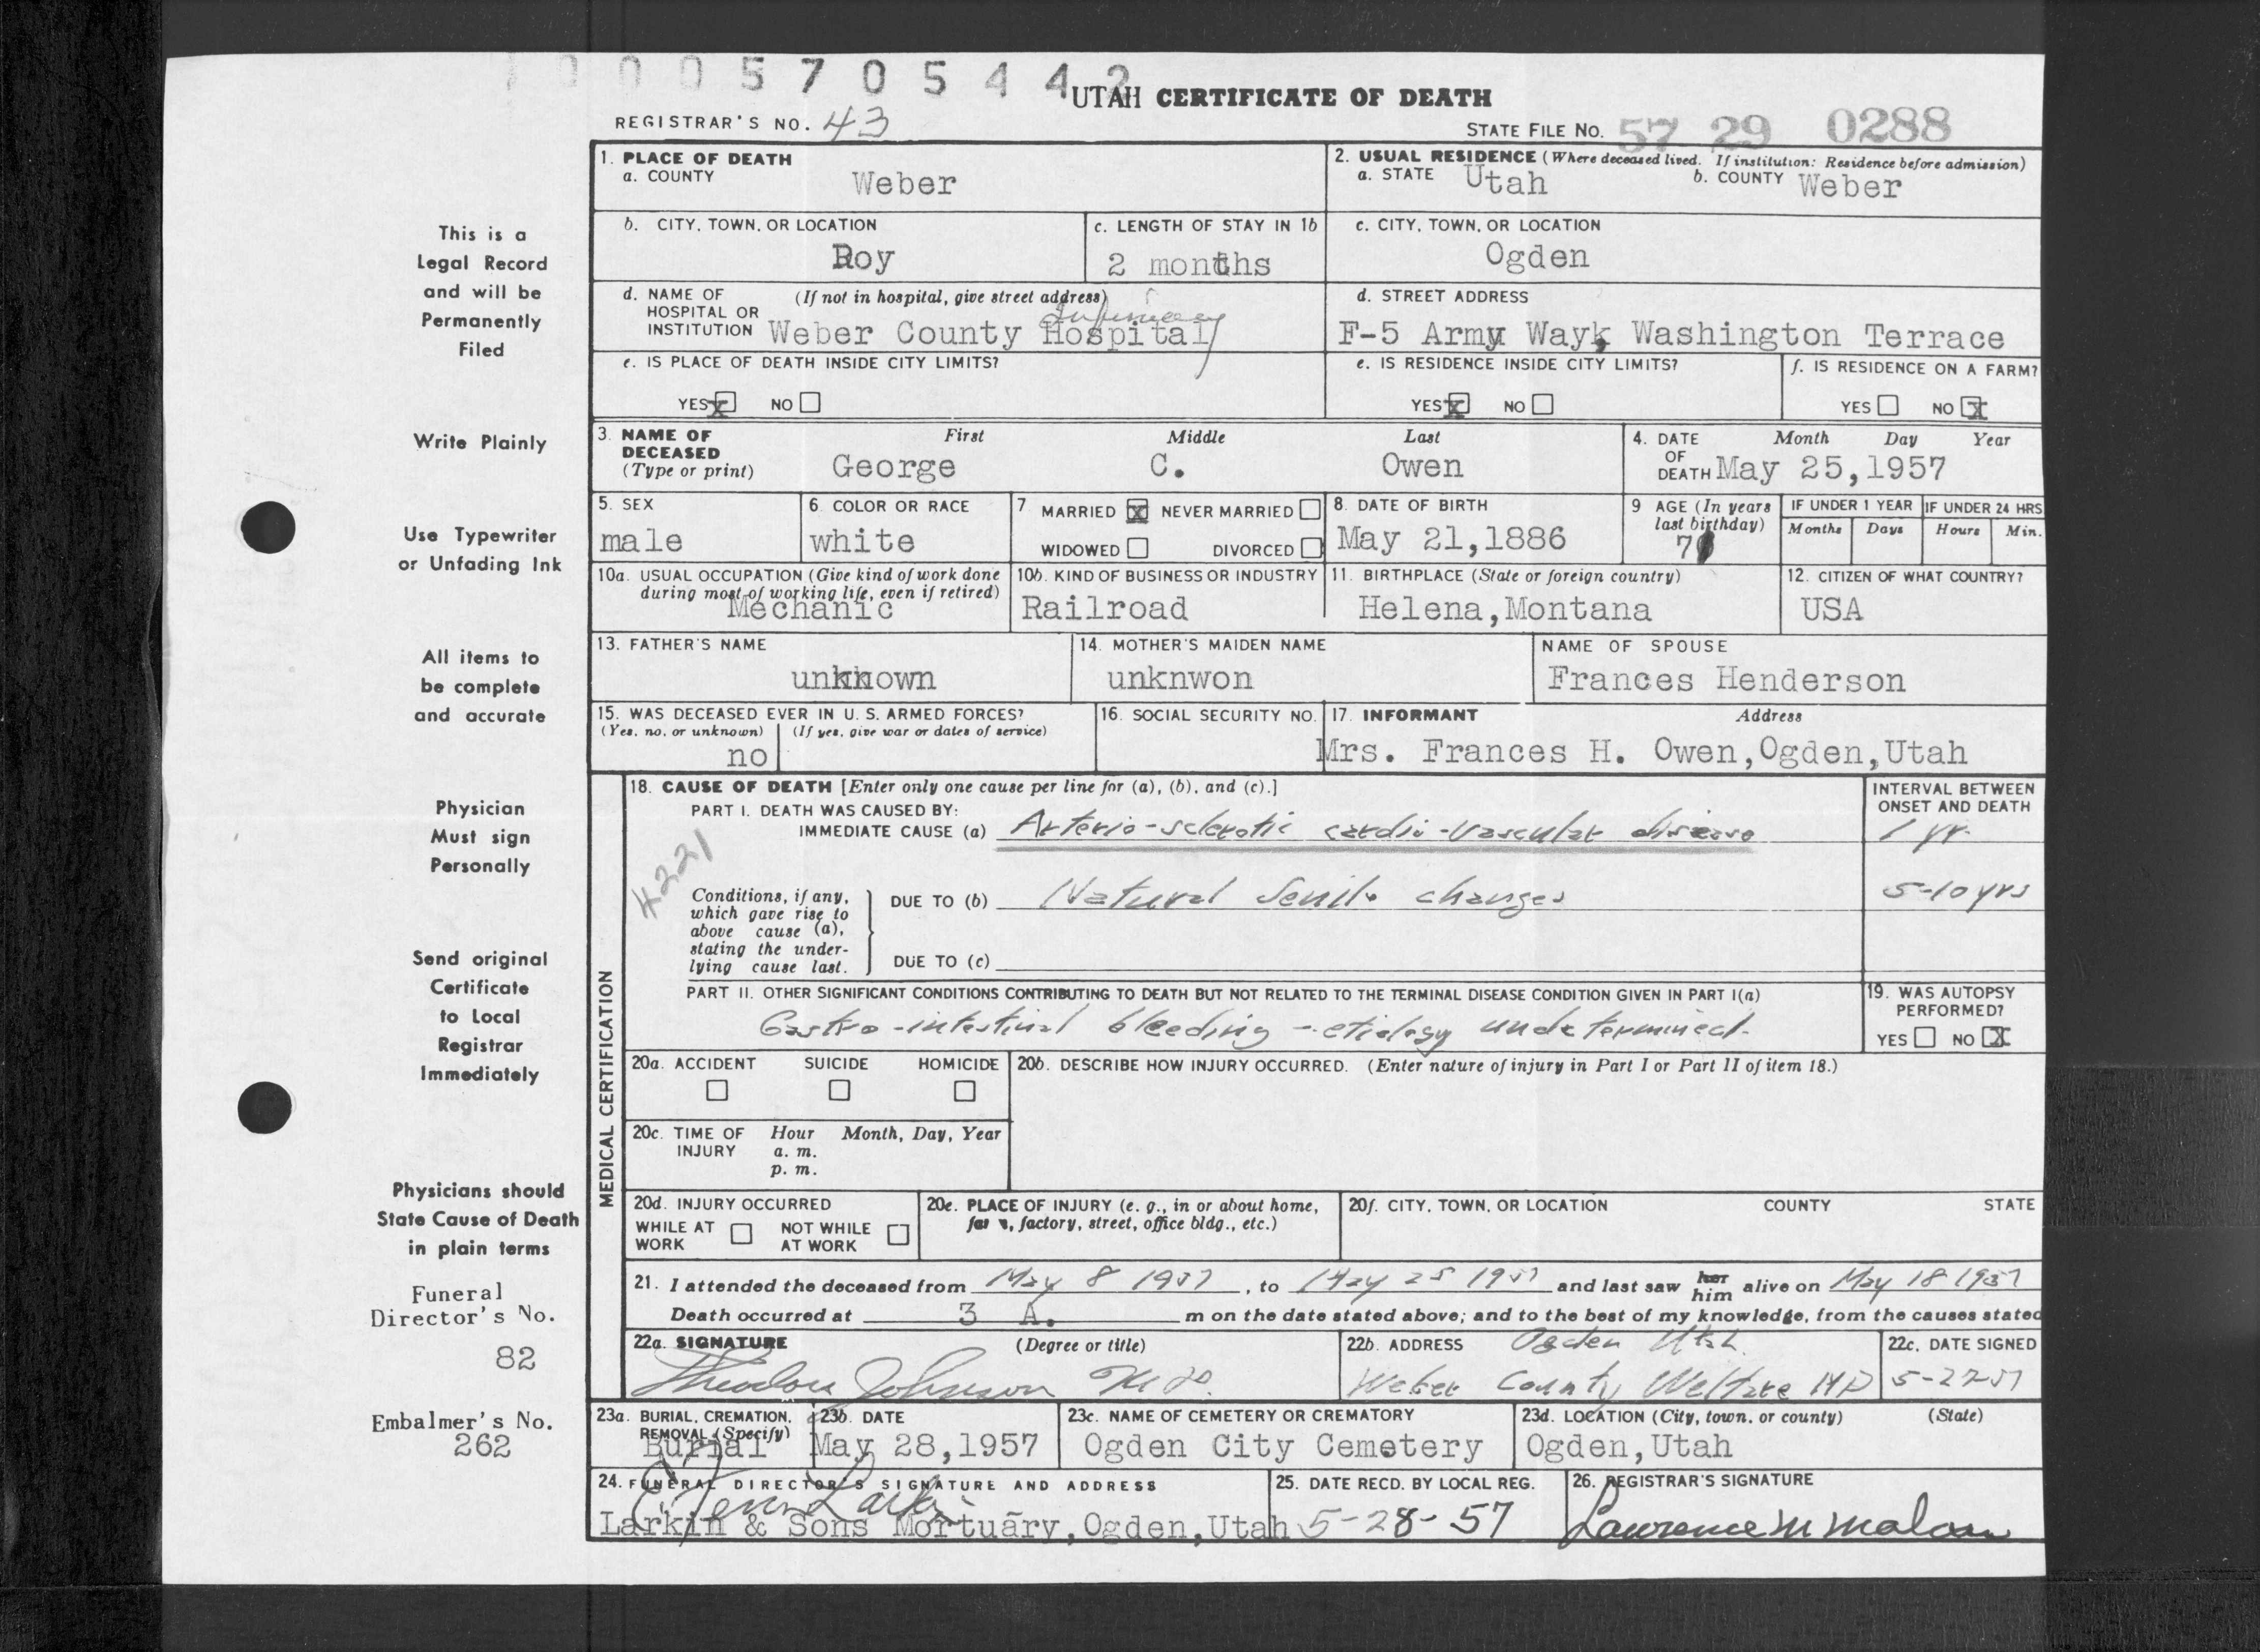 1000570544 2
UTAH CERTIFICATE OF DEATH
REGISTRAR'S NO. 43
STATE FILE NO. 57 29 0288
This is a
Legal Record
and will be
Permanently
Filed
Write Plainly
Use Typewriter
or Unfading Ink
All items to
be complete
and accurate
Physician
Must sign
Personally
Send original
Certificate
to Local
Registrar
Immediately
Physicians should
State Cause of Death
in plain terms
Funeral
Director's No.
82
Embalmer's No.
262
1. PLACE OF DEATH
a. COUNTY Weber
2. USUAL RESIDENCE (Where deceased lived. If institution: Residence before admission)
a. STATE Utah b. COUNTY Weber
b. CITY, TOWN, OR LOCATION
Roy
c. LENGTH OF STAY IN 1b
2 months
c. CITY, TOWN, OR LOCATION
Ogden
d. NAME OF (If not in hospital, give street address)
HOSPITAL OR Infirmary
INSTITUTION Weber County Hospital
d. STREET ADDRESS
F-5 Army Way, Washington Terrace
e. IS PLACE OF DEATH INSIDE CITY LIMITS?
YES X NO
e. IS RESIDENCE INSIDE CITY LIMITS?
YES X NO
f. IS RESIDENCE ON A FARM?
YES NO X
3. NAME OF DECEASED (Type or print)
First Middle Last
George C. Owen
4. DATE OF DEATH Month Day Year
May 25,1957
5. SEX
male
6. COLOR OR RACE
white
7 MARRIED X NEVER MARRIED
WIDOWED DIVORCED
8. DATE OF BIRTH
May 21,1886
9 AGE (In years
last birthday)
IF UNDER 1 YEAR IF UNDER 24 HRS
Months Days Hours Min.
10a. USUAL OCCUPATION (Give kind of work done
during most of working life, even if retired)
Mechanic
10b. KIND OF BUSINESS OR INDUSTRY
Railroad
11. BIRTHPLACE (State or foreign country)
Helena,Montana
12. CITIZEN OF WHAT COUNTRY?
USA
13. FATHER'S NAME
unknown
14. MOTHER'S MAIDEN NAME
unknwon
NAME OF SPOUSE
Frances Henderson
15. WAS DECEASED EVER IN U. S. ARMED FORCES?
(Yes, no, or unknown) (If yes, give war or dates of service)
no
16. SOCIAL SECURITY NO.
17. INFORMANT Address
Mrs. Frances H. Owen,Ogden,Utah
MEDICAL CERTIFICATION
18. CAUSE OF DEATH [Enter only one cause per line for (a), (b), and (c).]
INTERVAL BETWEEN
ONSET AND DEATH
PART I. DEATH WAS CAUSED BY:
IMMEDIATE CAUSE (a) Arterio-sclerotic cardio-vascular disease 1 yr.
4221
Conditions, if any,
which gave rise to
above cause (a),
stating the under-
lying cause last.
DUE TO (b) Natural Senile changes 5-10 yrs
DUE TO (c)
PART II. OTHER SIGNIFICANT CONDITIONS CONTRIBUTING TO DEATH BUT NOT RELATED TO THE TERMINAL DISEASE CONDITION GIVEN IN PART I(a)
Gastro-intestinal bleeding - etiology undetermined.
19. WAS AUTOPSY
PERFORMED?
YES NO X
20a. ACCIDENT SUICIDE HOMICIDE
20b. DESCRIBE HOW INJURY OCCURRED. (Enter nature of injury in Part I or Part II of item 18.)
20c. TIME OF INJURY Hour Month, Day, Year
a. m.
p. m.
20d. INJURY OCCURRED
WHILE AT WORK NOT WHILE AT WORK
20e. PLACE OF INJURY (e. g., in or about home,
farm, factory, street, office bldg., etc.)
20f. CITY, TOWN, OR LOCATION COUNTY STATE
21. I attended the deceased from May 8 1957, to May 25 1957 and last saw her him alive on May 18 1957
Death occurred at 3 A. m on the date stated above; and to the best of my knowledge, from the causes stated
22a. SIGNATURE (Degree or title)
Theodore Johnson M D.
22b. ADDRESS Ogden Utah.
Weber County Welfare MD
22c. DATE SIGNED
5-27-57
23a. BURIAL, CREMATION,
REMOVAL (Specify)
Burial
23b. DATE
May 28,1957
23c. NAME OF CEMETERY OR CREMATORY
Ogden City Cemetery
23d. LOCATION (City, town, or county) (State)
Ogden,Utah
24. FUNERAL DIRECTOR'S SIGNATURE AND ADDRESS
Larkin
Larkin & Sons Mortuary,Ogden,Utah
25. DATE RECD. BY LOCAL REG.
5-28-57
26. REGISTRAR'S SIGNATURE
Lawrence M Malan